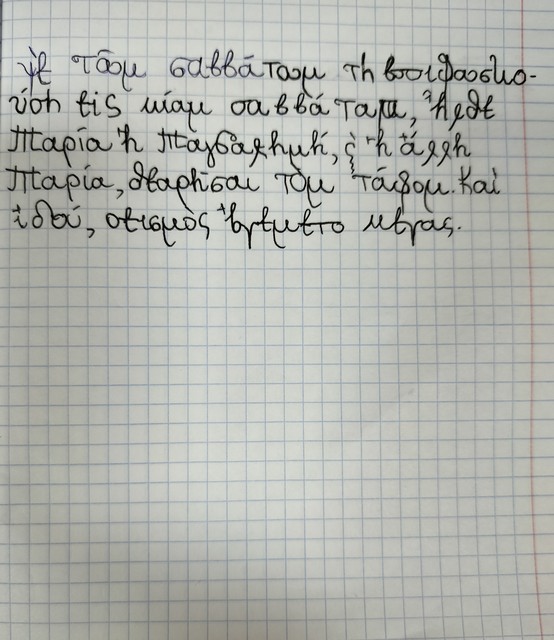 ψὲ τῶν σαββάτων τῇ ἐπιφωσκο-
ύσῃ εἰς μίαν σαββάτων, ἦλθε
Μαρία ἡ Μαγδαληνή, ϗ ἡ ἄλλη
Μαρία, θεωρῆσαι τὸν τάφον. Καὶ
ἰδού, σεισμὸς ἐγένετο μέγας.